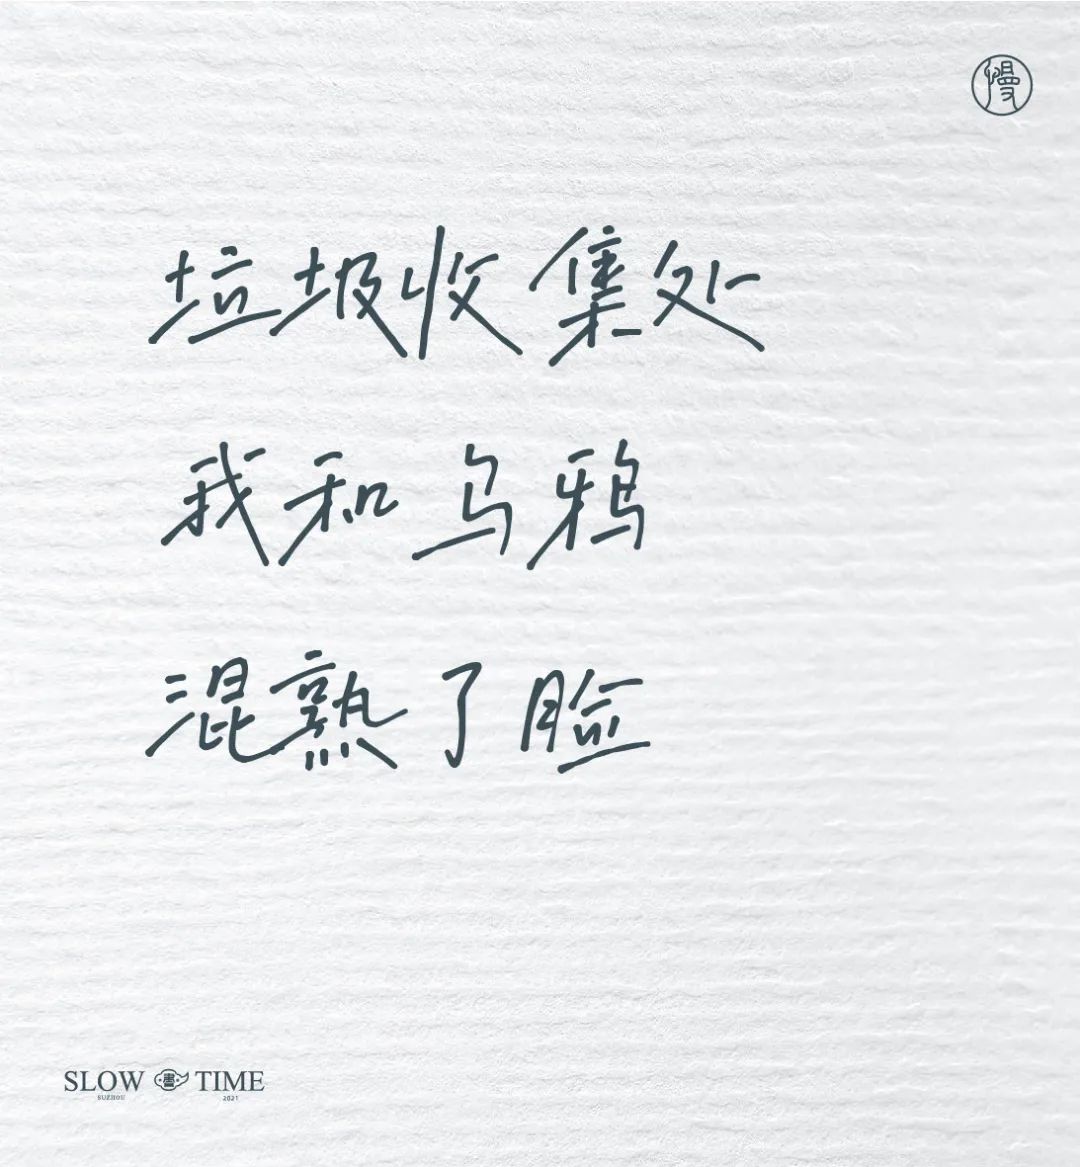 慢
垃圾收集处
我和乌鸦
混熟了脸
SLOW 書 TIME
SUZHOU 2021